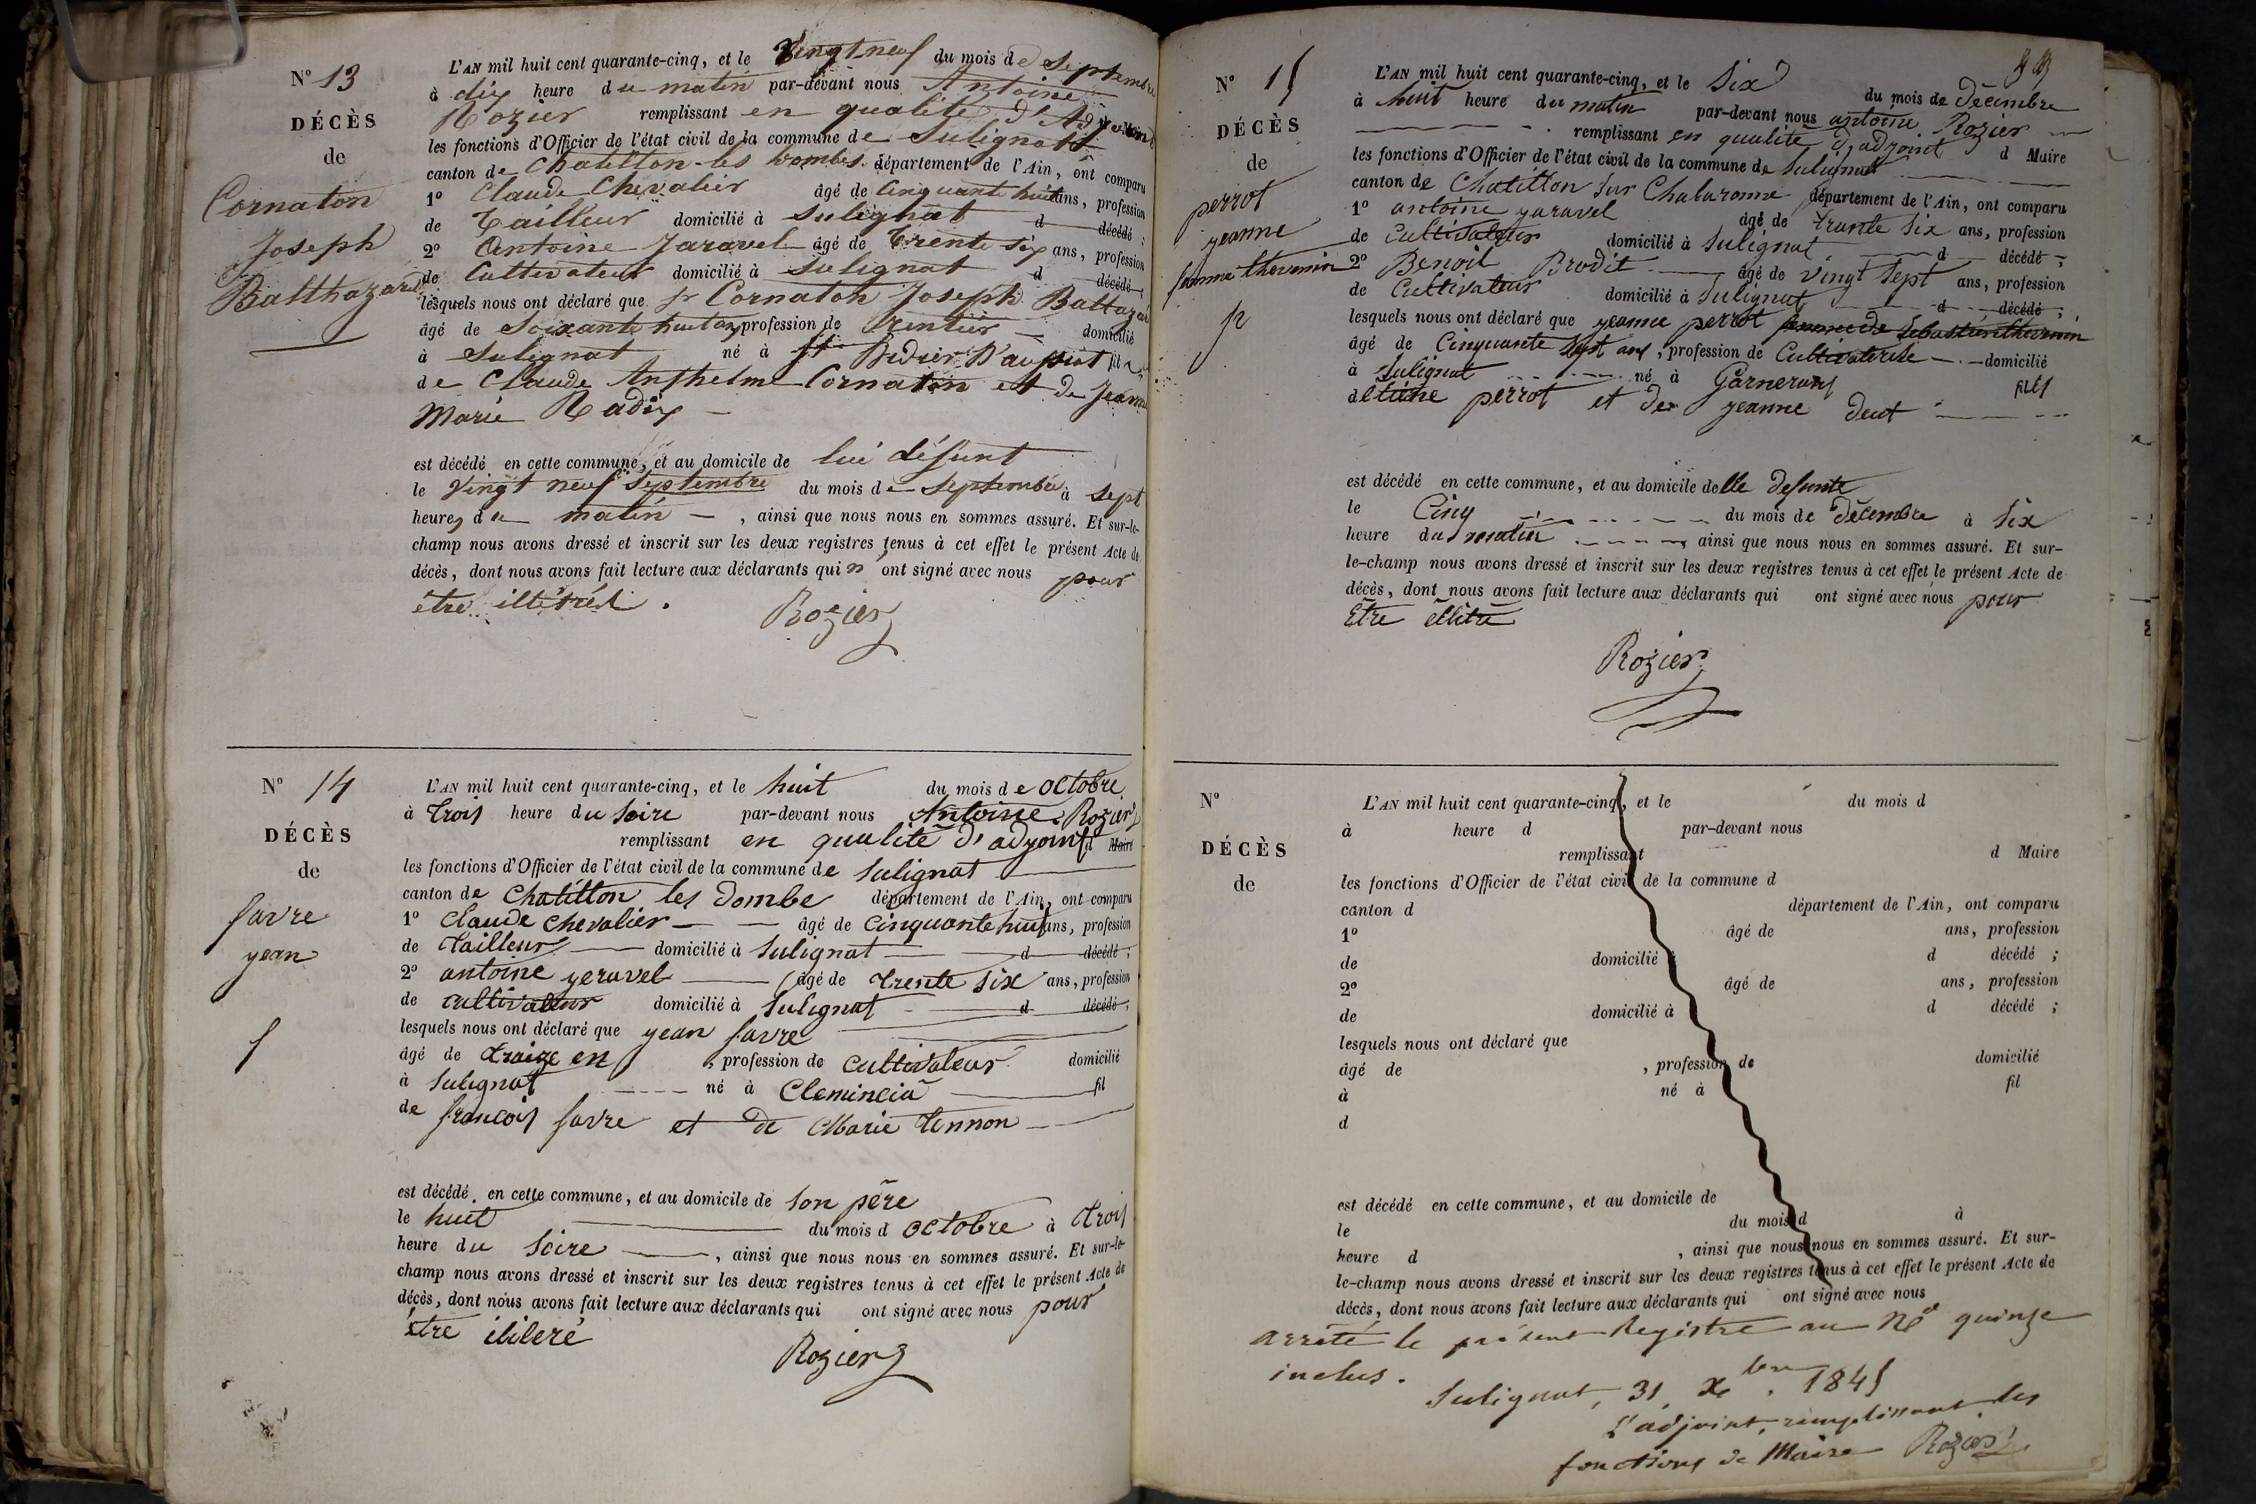 Nº 13
DÉCÈS
de
Cornaton
Joseph
Balthazard
L'AN mil huit cent quarante-cinq, et le vingt neuf du mois de Septembre
à dix heure du matin par-devant nous Antoine
Rozier remplissant en qualité d'Adjoint
les fonctions d'Officier de l'état civil de la commune de Sulignat
canton de Chatillon-les Dombes département de l'Ain, ont comparu
1º Claude Chevalier âgé de Cinquante huit ans, profession
de Tailleur domicilié à Sulignat d décédé ;
2º Antoine Jaravel âgé de Trente six ans, profession
de Cultivateur domicilié à Sulignat d décédé ;
lesquels nous ont déclaré que sr Cornaton Joseph Baltazard
âgé de Soixante huit ans, profession de Rentier domicilié
à Sulignat né à St Didier D'aussiat fil
de Claude Anthelme Cornaton et de Jeanne
Marie Radix
est décédé en cette commune, et au domicile de lui défunt
le vingt neuf Septembre du mois de Septembre à sept
heures du matin , ainsi que nous nous en sommes assuré. Et sur-le-
champ nous avons dressé et inscrit sur les deux registres tenus à cet effet le présent Acte de
décès, dont nous avons fait lecture aux déclarants qui n'ont signé avec nous pour
être illétrés.
Rozier
Nº 14
DÉCÈS
de
favre
yean
f
L'AN mil huit cent quarante-cinq, et le huit du mois de octobre
à trois heure du soire par-devant nous Antoine Rozier
remplissant en qualité d'adyoint d Maire
les fonctions d'Officier de l'état civil de la commune de Sulignat
canton de Chatillon les Dombe département de l'Ain, ont comparu
1º Claude Chevalier âgé de Cinquante huit ans, profession
de tailleur domicilié à Sulignat d décédé ;
2º antoine yeravel âgé de trente six ans, profession
de cultivateur domicilié à Sulignat d décédé ;
lesquels nous ont déclaré que yean favre
âgé de traize en , profession de cultivateur domicilié
à Sulignat né à Clemincia fil
de francois favre et de Marie Tennon
est décédé en cette commune, et au domicile de son père
le huit du mois d octobre à trois
heure du soire , ainsi que nous nous en sommes assuré. Et sur-le-
champ nous avons dressé et inscrit sur les deux registres tenus à cet effet le présent Acte de
décès, dont nous avons fait lecture aux déclarants qui ont signé avec nous pour
être ilileré
Rozier
Nº 15
DÉCÈS
de
perrot
yeanne
femme thevenin
p
L'AN mil huit cent quarante-cinq, et le six du mois de décembre
à huit heure du matin par-devant nous antoine Rozier
remplissant en qualité d'adjoint d Maire
les fonctions d'Officier de l'état civil de la commune de Sulignat
canton de Chatillon sur Chalaronne département de l'Ain, ont comparu
1º antoine yaravel âgé de trante six ans, profession
de cultivateur domicilié à Sulignat d décédé ;
2º Benoit Brodit âgé de vingt sept ans, profession
de Cultivateur domicilié à Sulignat d décédé ;
lesquels nous ont déclaré que yeanne perrot femme de Sebastien thevenin
âgé de Cinquante sept ans, profession de Cultivaterise domicilié
à Sulignat né à Garnerans filles
de perrot et de yeanne
est décédé en cette commune, et au domicile delle defunte
le Cinq du mois de décembre à six
heure du matin , ainsi que nous nous en sommes assuré. Et sur-
le-champ nous avons dressé et inscrit sur les deux registres tenus à cet effet le présent Acte de
décès, dont nous avons fait lecture aux déclarants qui ont signé avec nous pour
Etre illitré
Rozier
Nº
DÉCÈS
de
L'AN mil huit cent quarante-cinq, et le du mois d
à heure d par-devant nous
remplissant d Maire
les fonctions d'Officier de l'état civil de la commune d
canton d département de l'Ain, ont comparu
1º âgé de ans, profession
de domicilié à d décédé ;
2º âgé de ans, profession
de domicilié à d décédé ;
lesquels nous ont déclaré que
âgé de , profession de domicilié
à né à fil
d
est décédé en cette commune, et au domicile de
le du mois d à
heure d , ainsi que nous nous en sommes assuré. Et sur-
le-champ nous avons dressé et inscrit sur les deux registres tenus à cet effet le présent Acte de
décès, dont nous avons fait lecture aux déclarants qui ont signé avec nous
arrêté le présent Registre au Nº quinze
inclus.
Sulignat, 31 Xbre 1845
L'adjoint, remplissant les
fonctions de Maire Rozier